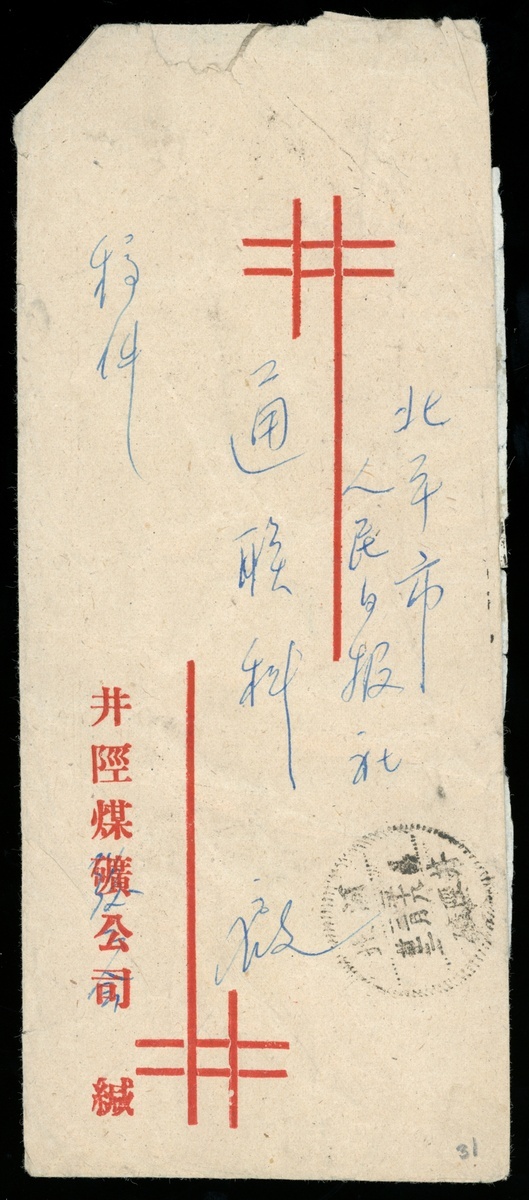 北平市
人民日报社
通联科
啟
稿件
井陘煤礦公司 緘
河北
井陘
31